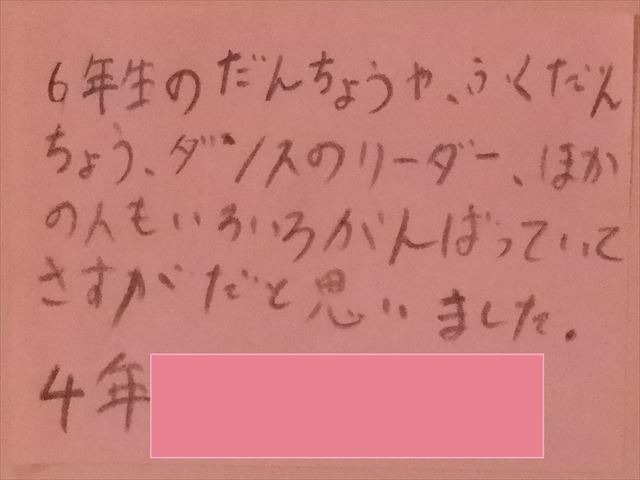 6年生のだんちょうや、ふくだん
ちょう、ダンスのリーダー、ほか
の人もいろいろがんばっていて
さすがだと思いました。
4年